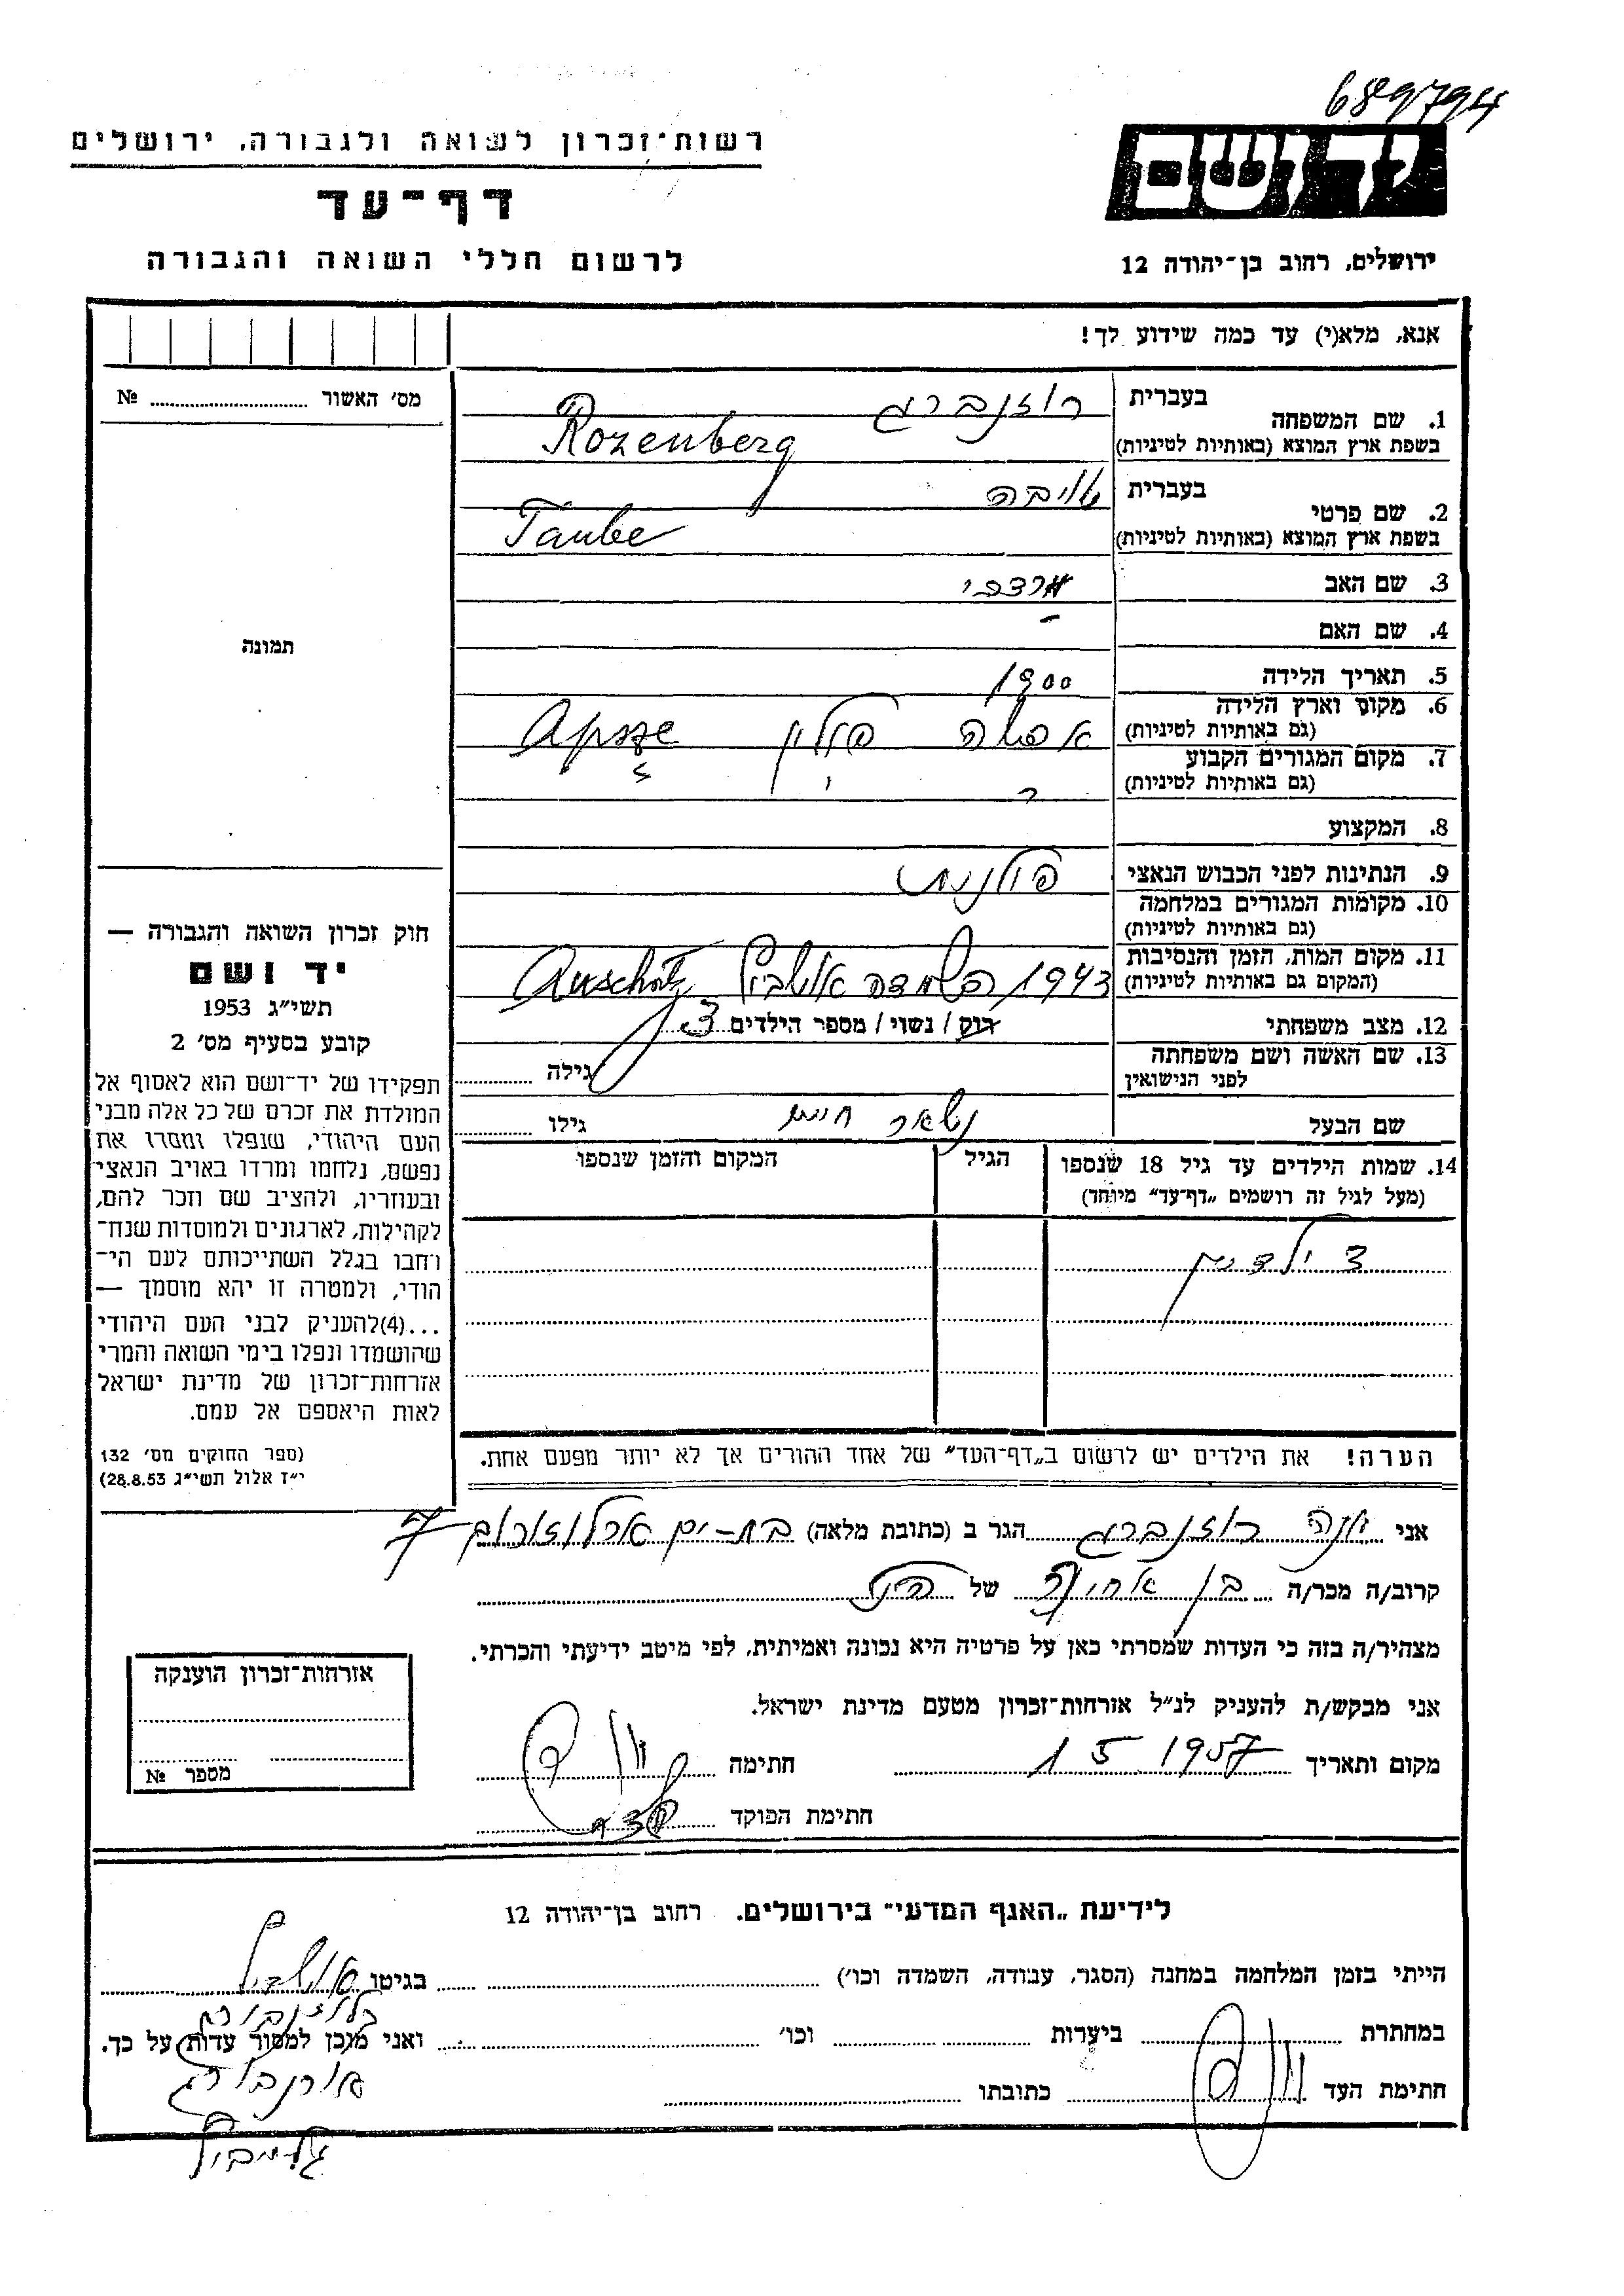 6897794
רשות־זכרון לשואה ולגבורה, ירושלים
יד ושם
דף־עד
לרשום חללי השואה והגבורה
ירושלים, רחוב בן־יהודה 12
אנא, מלא(י) עד כמה שידוע לך!
מס׳ האשור № 
1. שם המשפחה בעברית רוזנברג
בשפת ארץ המוצא (באותיות לטיניות) Rozenberg
2. שם פרטי בעברית טויבה
בשפת ארץ המוצא (באותיות לטיניות) Taube
3. שם האב מרדכי
4. שם האם -
תמונה
5. תאריך הלידה 1900
6. מקום וארץ הלידה
(גם באותיות לטיניות) אפשה פולין Apsze
7. מקום המגורים הקבוע
(גם באותיות לטיניות)
8. המקצוע
9. הנתינות לפני הכבוש הנאצי פולנית
10. מקומות המגורים במלחמה
(גם באותיות לטיניות)
11. מקום המות, הזמן והנסיבות
(המקום גם באותיות לטיניות) 1943 השמדה אושביץ
12. מצב משפחתי רוק / נשוי / מספר הילדים 3
13. שם האשה ושם משפחתה
לפני הנישואין גילה
שם הבעל גילו
14. שמות הילדים עד גיל 18 שנספו
(מעל לגיל זה רושמים „דף־עד״ מיוחד)
הגיל
המקום והזמן שנספו
3 ילדים
חוק זכרון השואה והגבורה —
יד ושם
תשי״ג 1953
קובע בסעיף מס׳ 2
תפקידו של יד־ושם הוא לאסוף אל
המולדת את זכרם של כל אלה מבני
העם היהודי, שנפלו ומסרו את
נפשם, נלחמו ומרדו באויב הנאצי
ובעוזריו, ולהציב שם וזכר להם,
לקהילות, לארגונים ולמוסדות שנח־
רחבו בגלל השתייכותם לעם הי־
הודי, ולמטרה זו יהא מוסמך —
...(4)להעניק לבני העם היהודי
שהושמדו ונפלו בימי השואה והמרי
אזרחות־זכרון של מדינת ישראל
לאות היאספם אל עמם.
(ספר החוקים מס׳ 132
י״ז אלול תשי״ג 28.8.53)
הערה! את הילדים יש לרשום ב„דף־העד״ של אחד ההורים אך לא יותר מפעם אחת.
אני יונה רוזנברג הגר ב (כתובת מלאה) בת-ים ארלוזורוב 7
קרוב/ה מכר/ה בן אחותה של הנ״ל
מצהיר/ה בזה כי העדות שמסרתי כאן על פרטיה היא נכונה ואמיתית, לפי מיטב ידיעתי והכרתי.
אני מבקש/ת להעניק לנ״ל אזרחות־זכרון מטעם מדינת ישראל.
מקום ותאריך 1 5 1957 חתימה
חתימת הפוקד
אזרחות־זכרון הוענקה
מספר №
לידיעת „האגף המדעי״ בירושלים, רחוב בן־יהודה 12
הייתי בזמן המלחמה במחנה (הסגר, עבודה, השמדה וכו׳) בגיטו אושביץ
במחתרת ביערות וכו׳ ואני מוכן למסור עדות על כך.
חתימת העד כתובתו